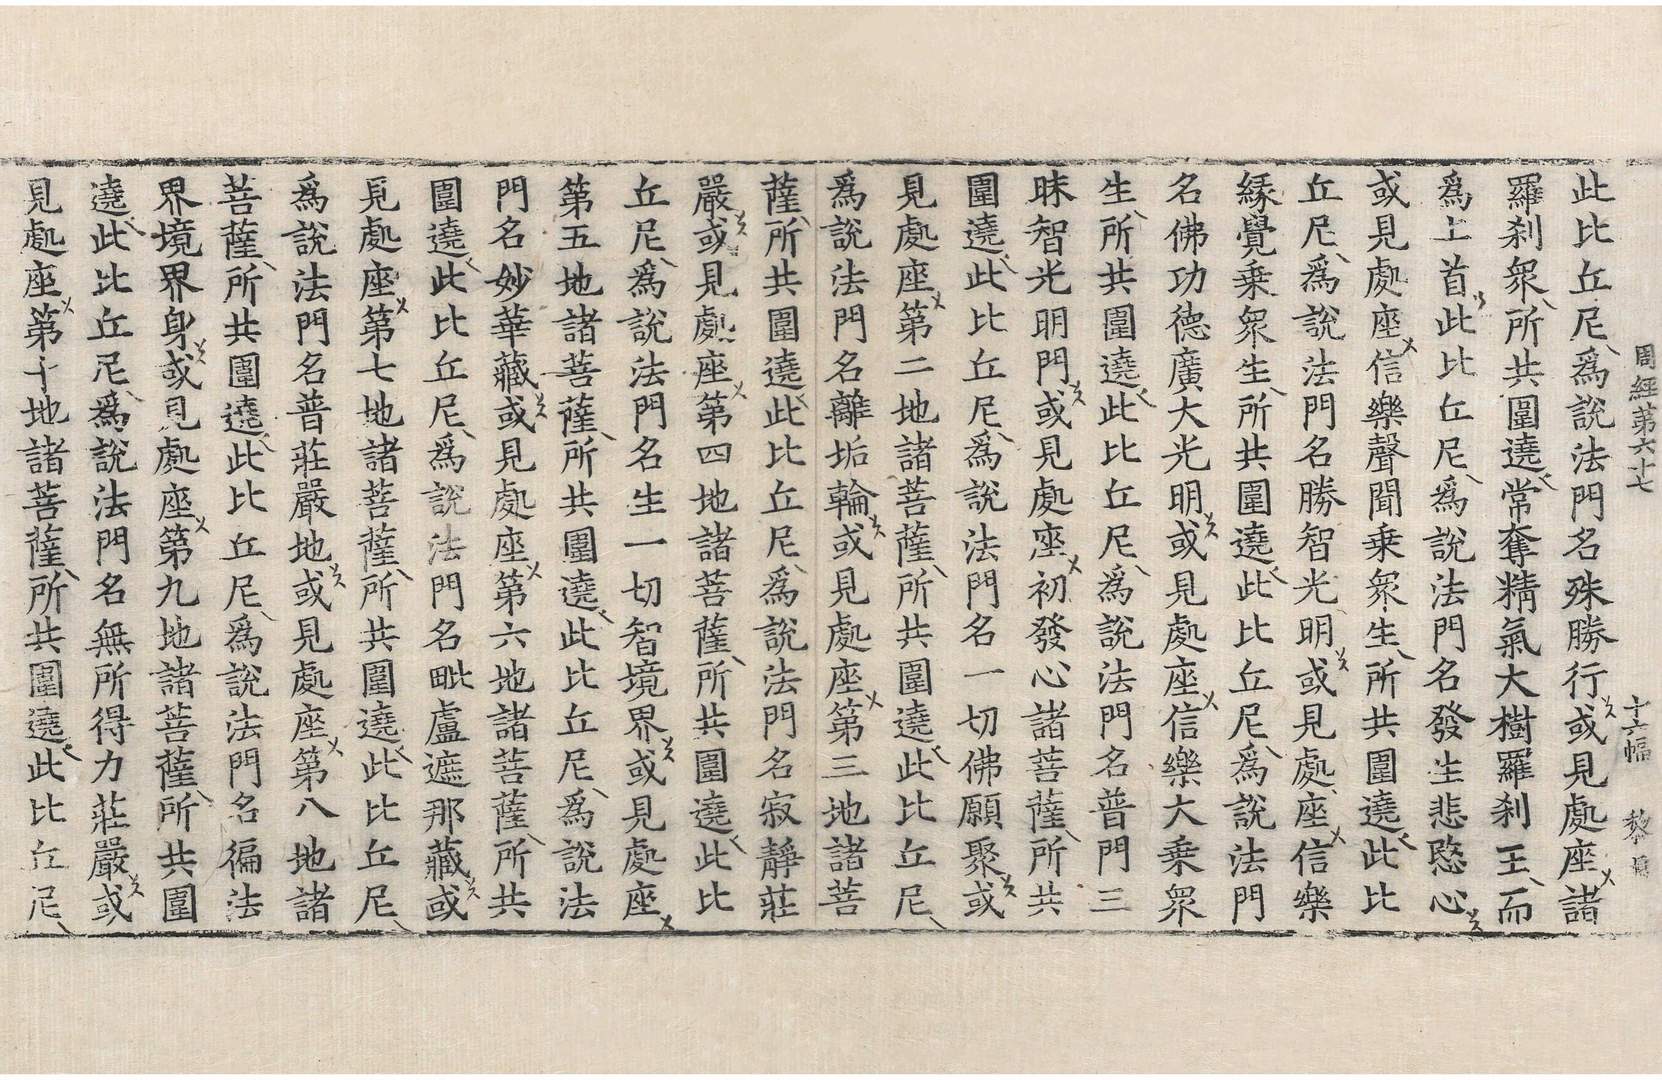 周經第六十七　十六幅
此比丘尼爲說法門名殊勝行或見處座諸
羅刹衆所共圍遶常奪精氣大樹羅刹王而
爲上首此比丘尼爲說法門名發生悲愍心
或見處座信樂聲聞乗衆生所共圍遶此比
丘尼爲說法門名勝智光明或見處座信樂
縁覺乗衆生所共圍遶此比丘尼爲說法門
名佛功德廣大光明或見處座信樂大乗衆
生所共圍遶此比丘尼爲說法門名普門三
昧智光明門或見處座初發心諸菩薩所共
圍遶此比丘尼爲說法門名一切佛願聚或
見處座第二地諸菩薩所共圍遶此比丘尼
爲說法門名離垢輪或見處座第三地諸菩
薩所共圍遶此比丘尼爲說法門名寂靜莊
嚴或見處座第四地諸菩薩所共圍遶此比
丘尼爲說法門名生一切智境界或見處座
第五地諸菩薩所共圍遶此比丘尼爲說法
門名妙華藏或見處座第六地諸菩薩所共
圍遶此比丘尼爲說法門名毗盧遮那藏或
見處座第七地諸菩薩所共圍遶此比丘尼
爲說法門名普莊嚴地或見處座第八地諸
菩薩所共圍遶此比丘尼爲說法門名徧法
界境界身或見處座第九地諸菩薩所共圍
遶此比丘尼爲說法門名無所得力莊嚴或
見處座第十地諸菩薩所共圍遶此比丘尼